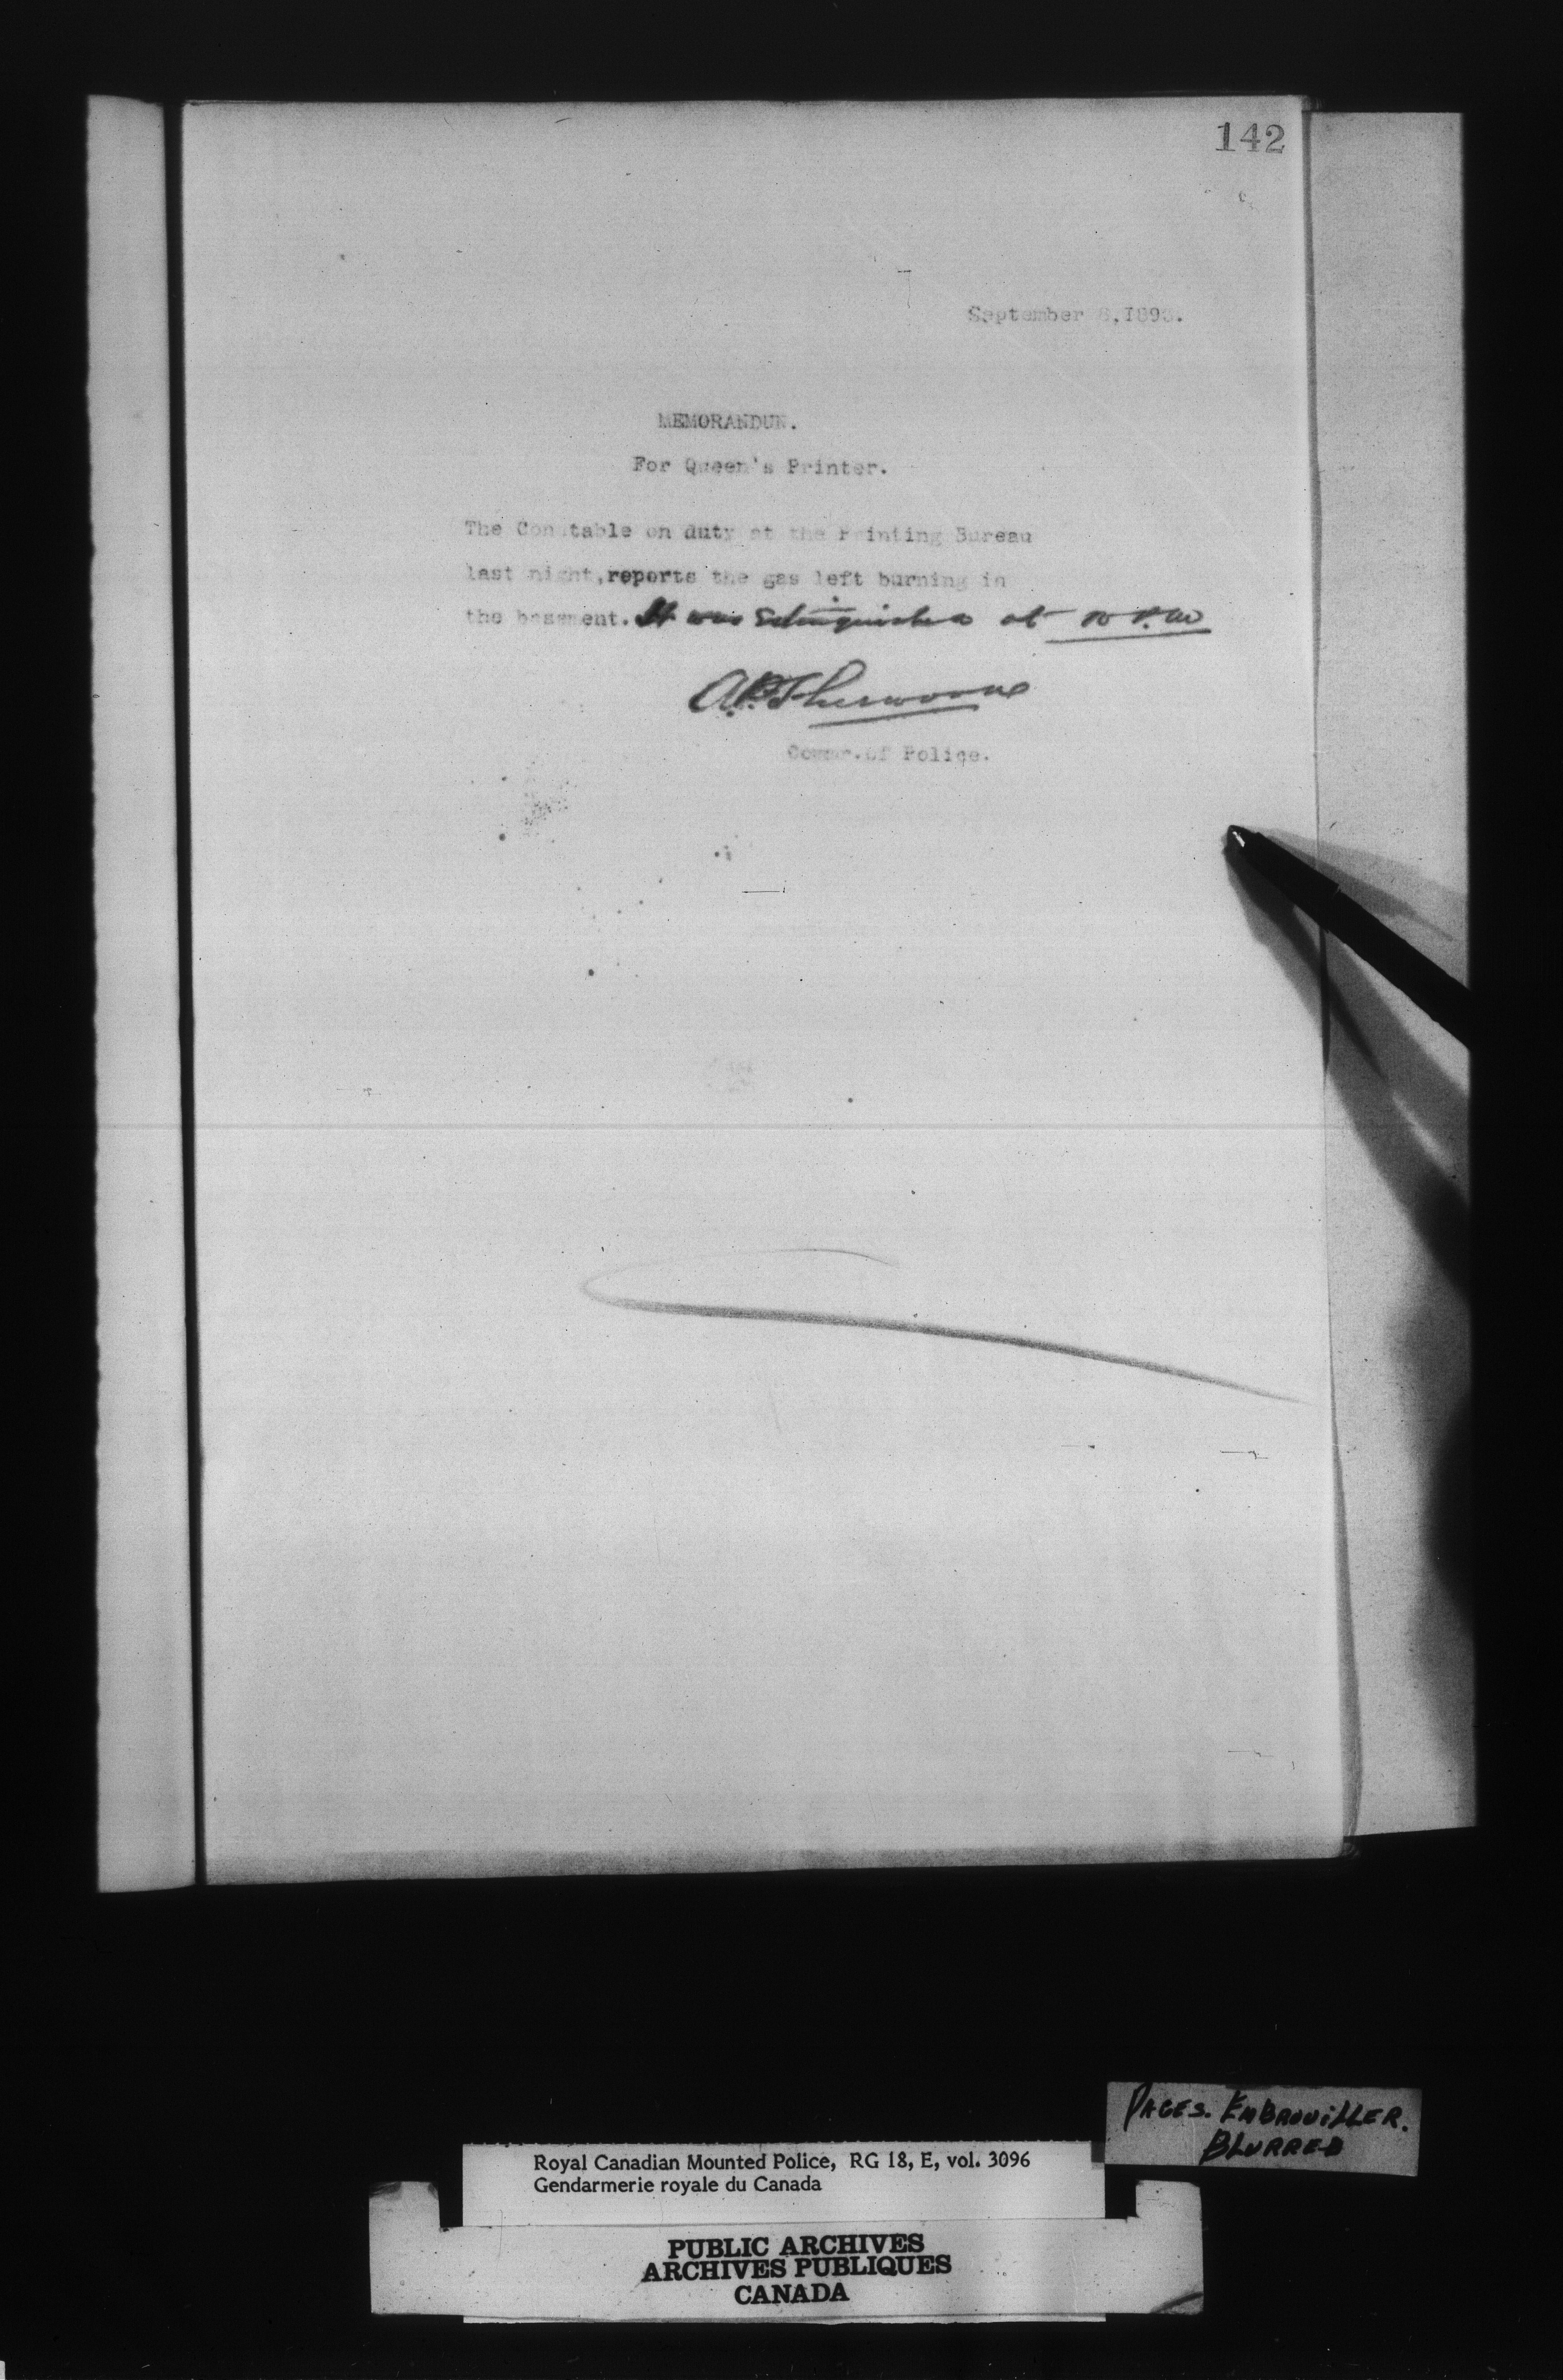 142
September 8, 189
MEMORANDUM.
For Queen's Printer.
The Constable on duty at the Printing Bureau
last night, reports the gas left burning in
the basement. It was extinguished at 10 P.M
A.P. Sherwood
Commr. of Police.
PAGES. EMBROUILLER.
BLURRED
Royal Canadian Mounted Police, RG 18, E, vol. 3096
Gendarmerie royale du Canada
PUBLIC ARCHIVES
ARCHIVES PUBLIQUES
CANADA